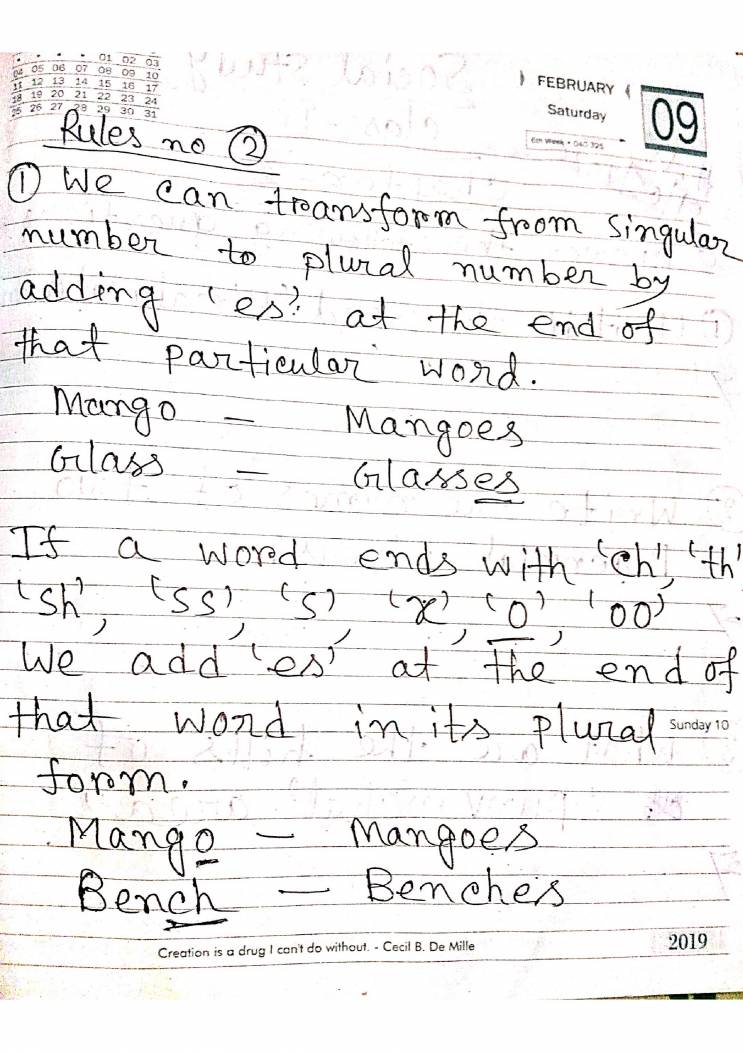 01 02 03
04 05 06 07 08 09 10
11 12 13 14 15 16 17
18 19 20 21 22 23 24
25 26 27 28 29 30 31
FEBRUARY
Saturday
09
Rules no ②
① We can transform from singular
number to plural number by
adding 'es' at the end of
that particular word.
Mango – Mangoes
Glass – Glasses
If a word ends with 'ch', 'th'
'sh', 'ss', 's' 'x', 'o', 'oo'
We add 'es' at the end of
that word in its plural
Sunday 10
form.
Mango – Mangoes
Bench – Benches
Creation is a drug I can't do without. - Cecil B. De Mille
2019